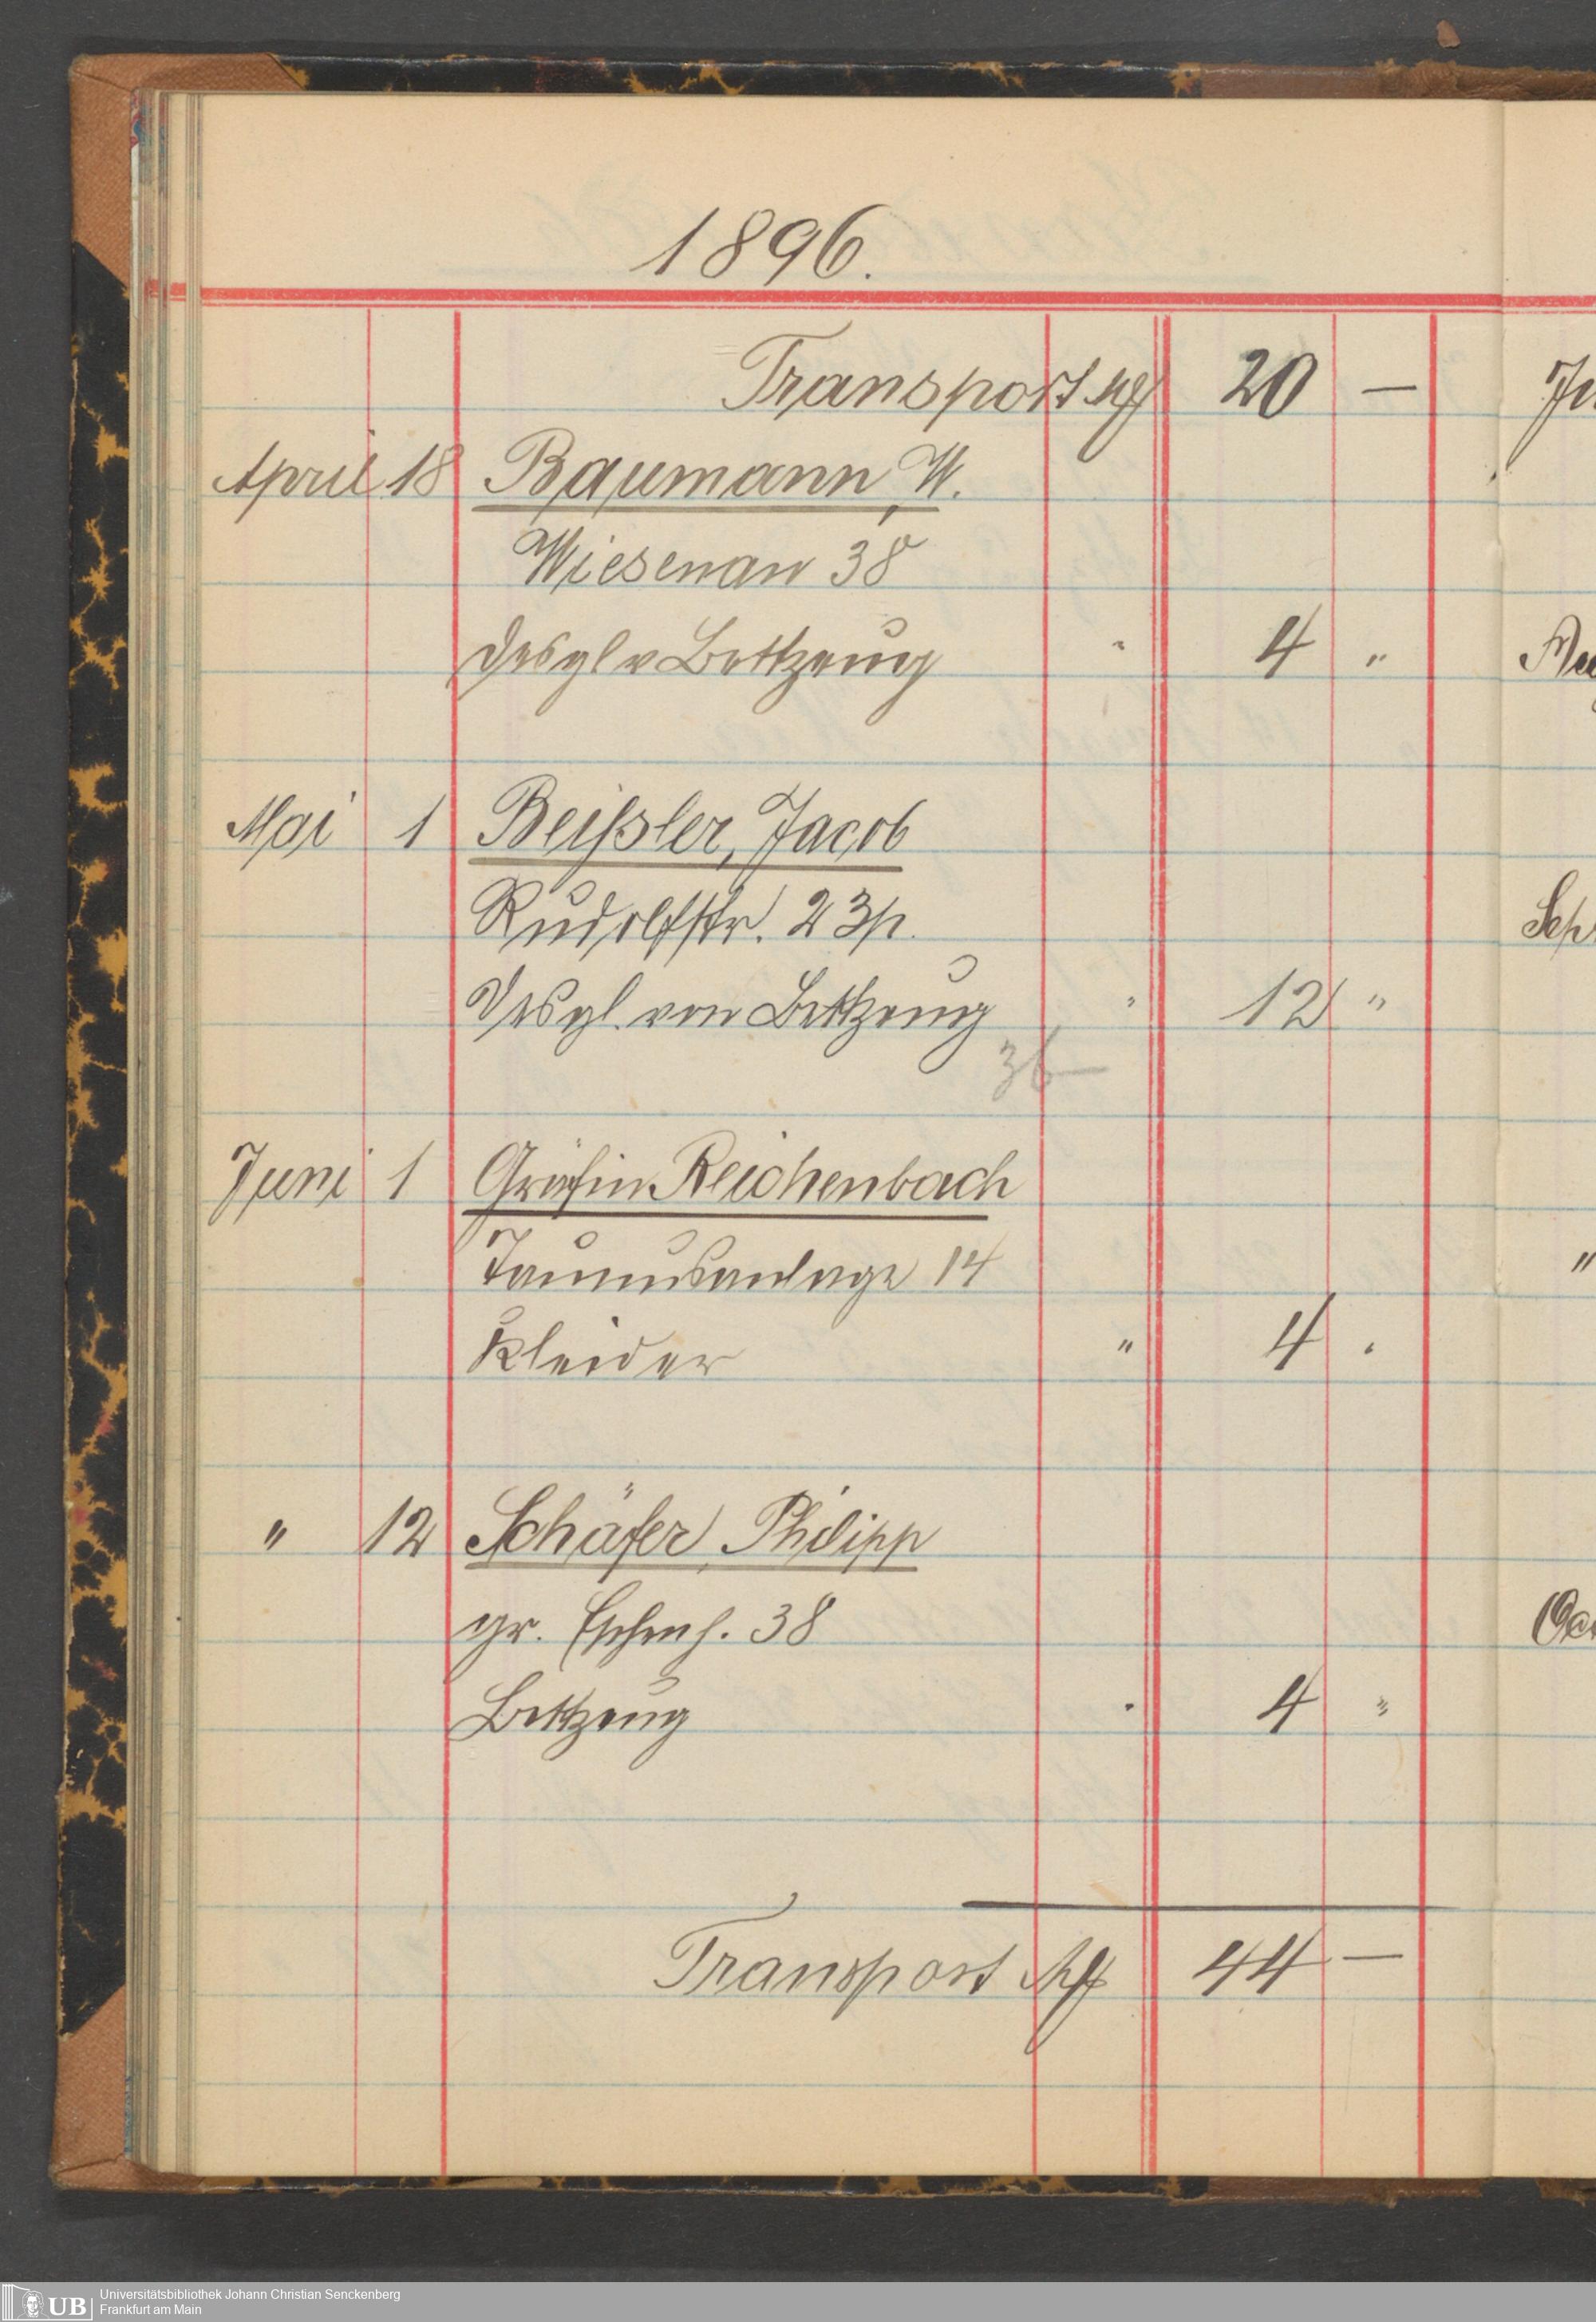 1896.
Transport M 20 —
April 18 Baumann, W.
Wiesenau 38
Desgl v Bettzeug " 4 "
Mai 1 Beißler, Jacob
Rudolfstr. 23 p.
Desgl. von Bettzeug " 12 "
36 —
Juni 1 Gräfin Reichenbach
Taunusanlage 14
Kleider " 4 "
" 12 Schäfer, Philipp
gr. Eschenh. 38
Bettzeug " 4 "
Transport M 44 —
Sep
"
UB
Universitätsbibliothek Johann Christian Senckenberg
Frankfurt am Main